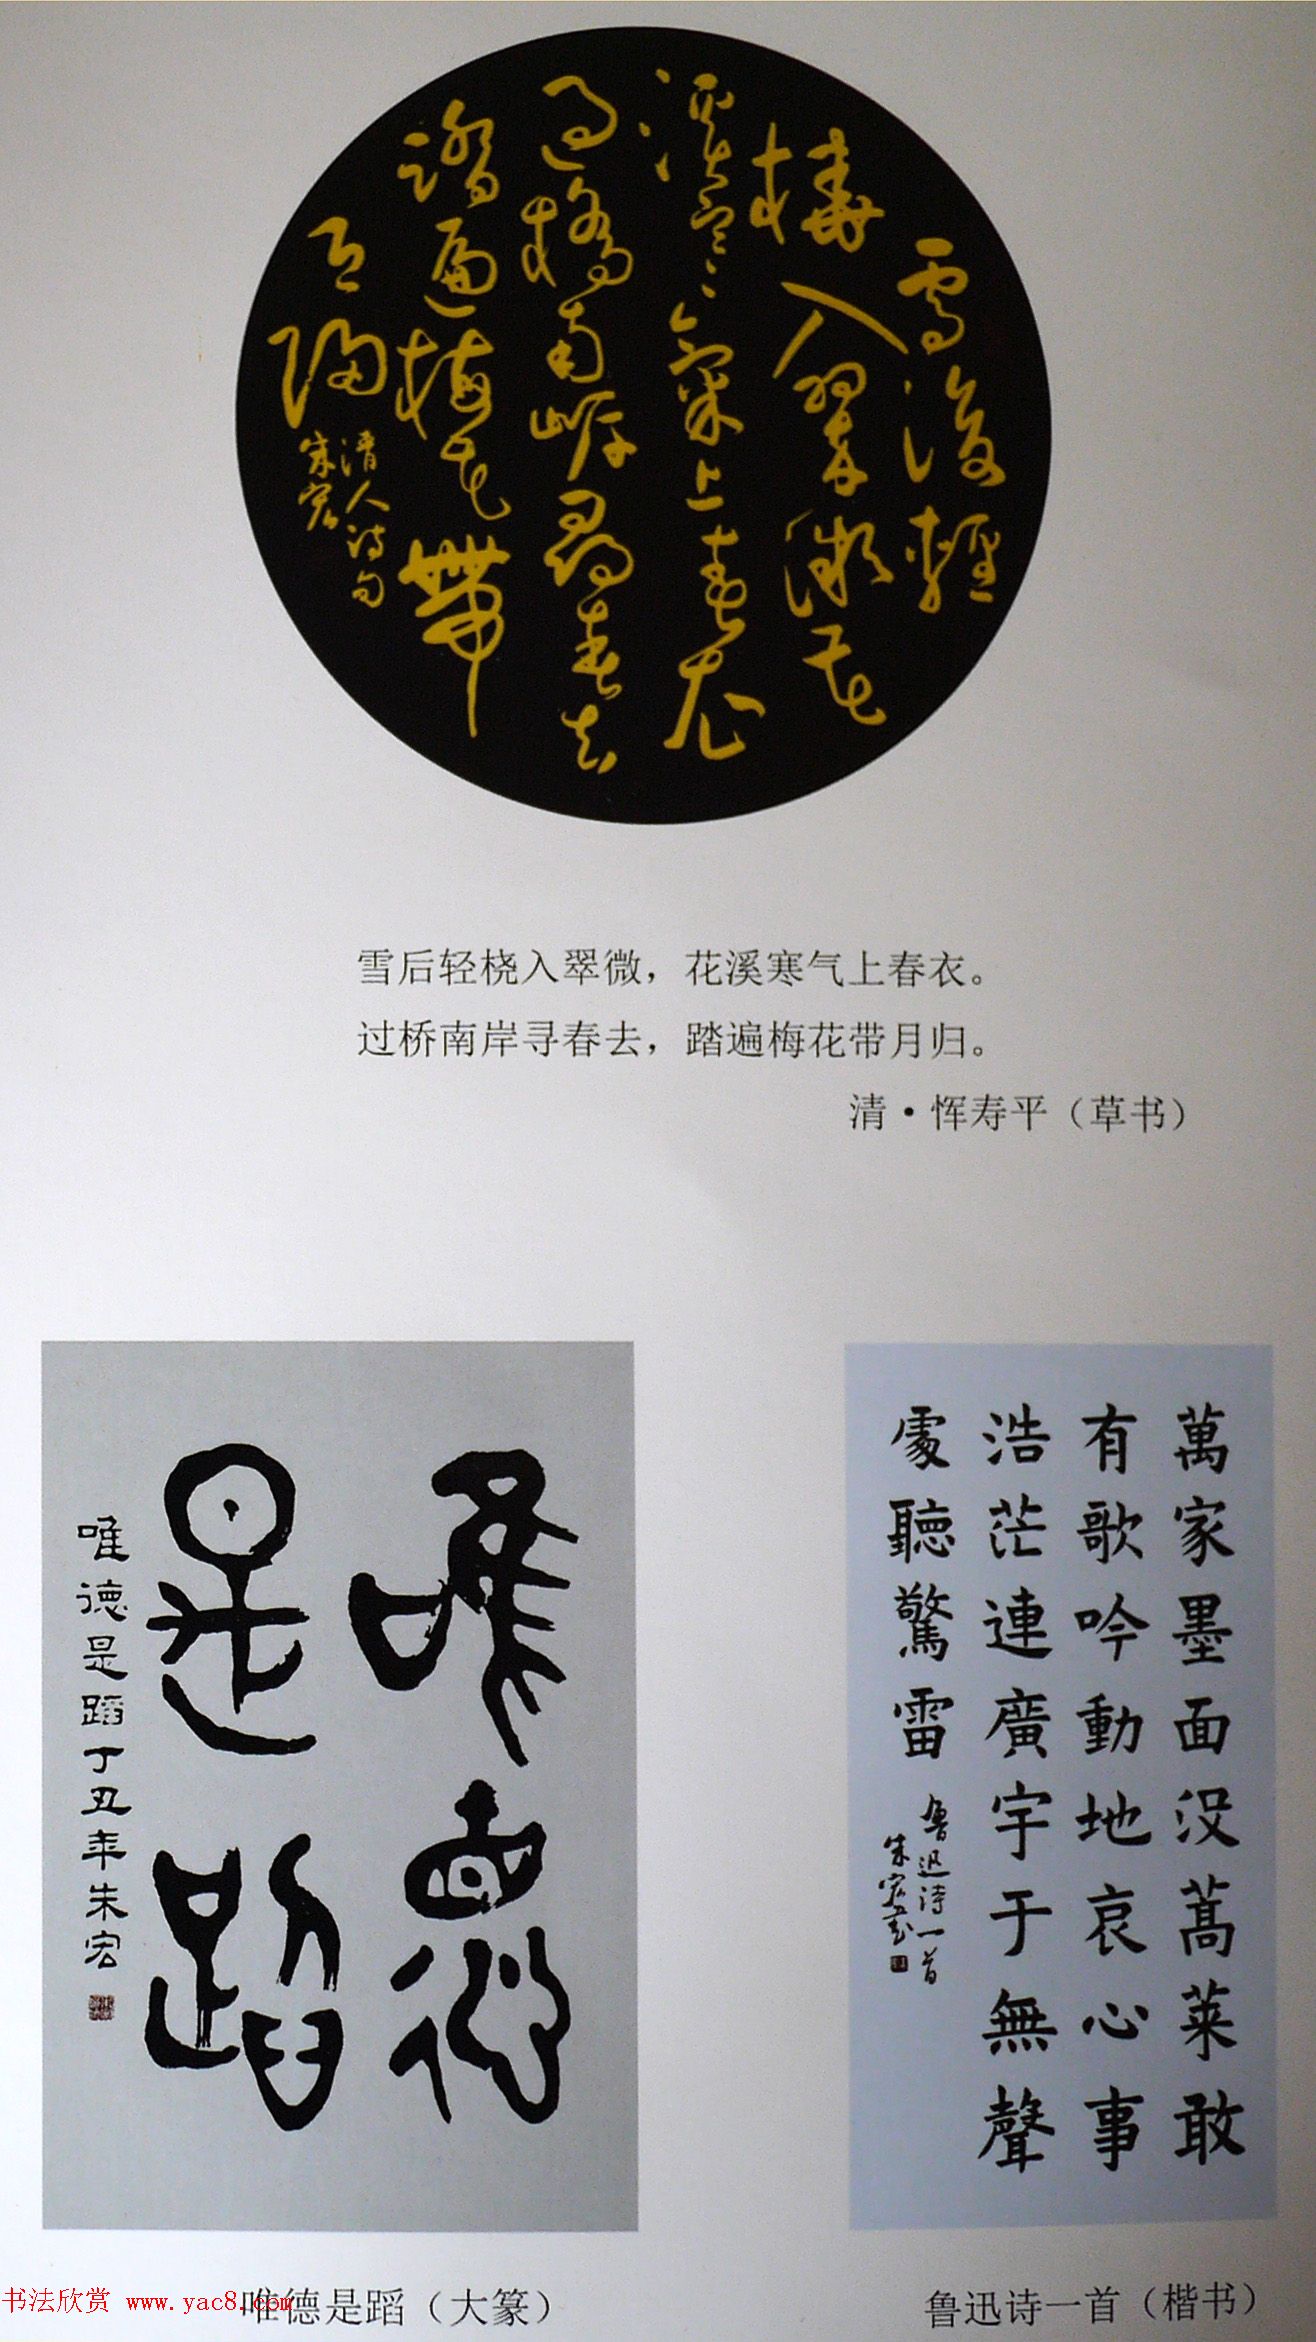 雪後輕
橈入翠微花
溪寒氣上春衣
過橋南岸尋春去
踏遍梅花帶
月歸
清人诗句
朱宏
雪后轻桡入翠微，花溪寒气上春衣。
过桥南岸寻春去，踏遍梅花带月归。
清·恽寿平（草书）
唯德
是蹈
唯德是蹈丁丑年朱宏
唯德是蹈（大篆）
萬家墨面没蒿莱敢
有歌吟動地哀心事
浩茫連廣宇于無聲
處聽驚雷
魯迅诗一首
朱宏书
鲁迅诗一首（楷书）
书法欣赏 www.yac8.com